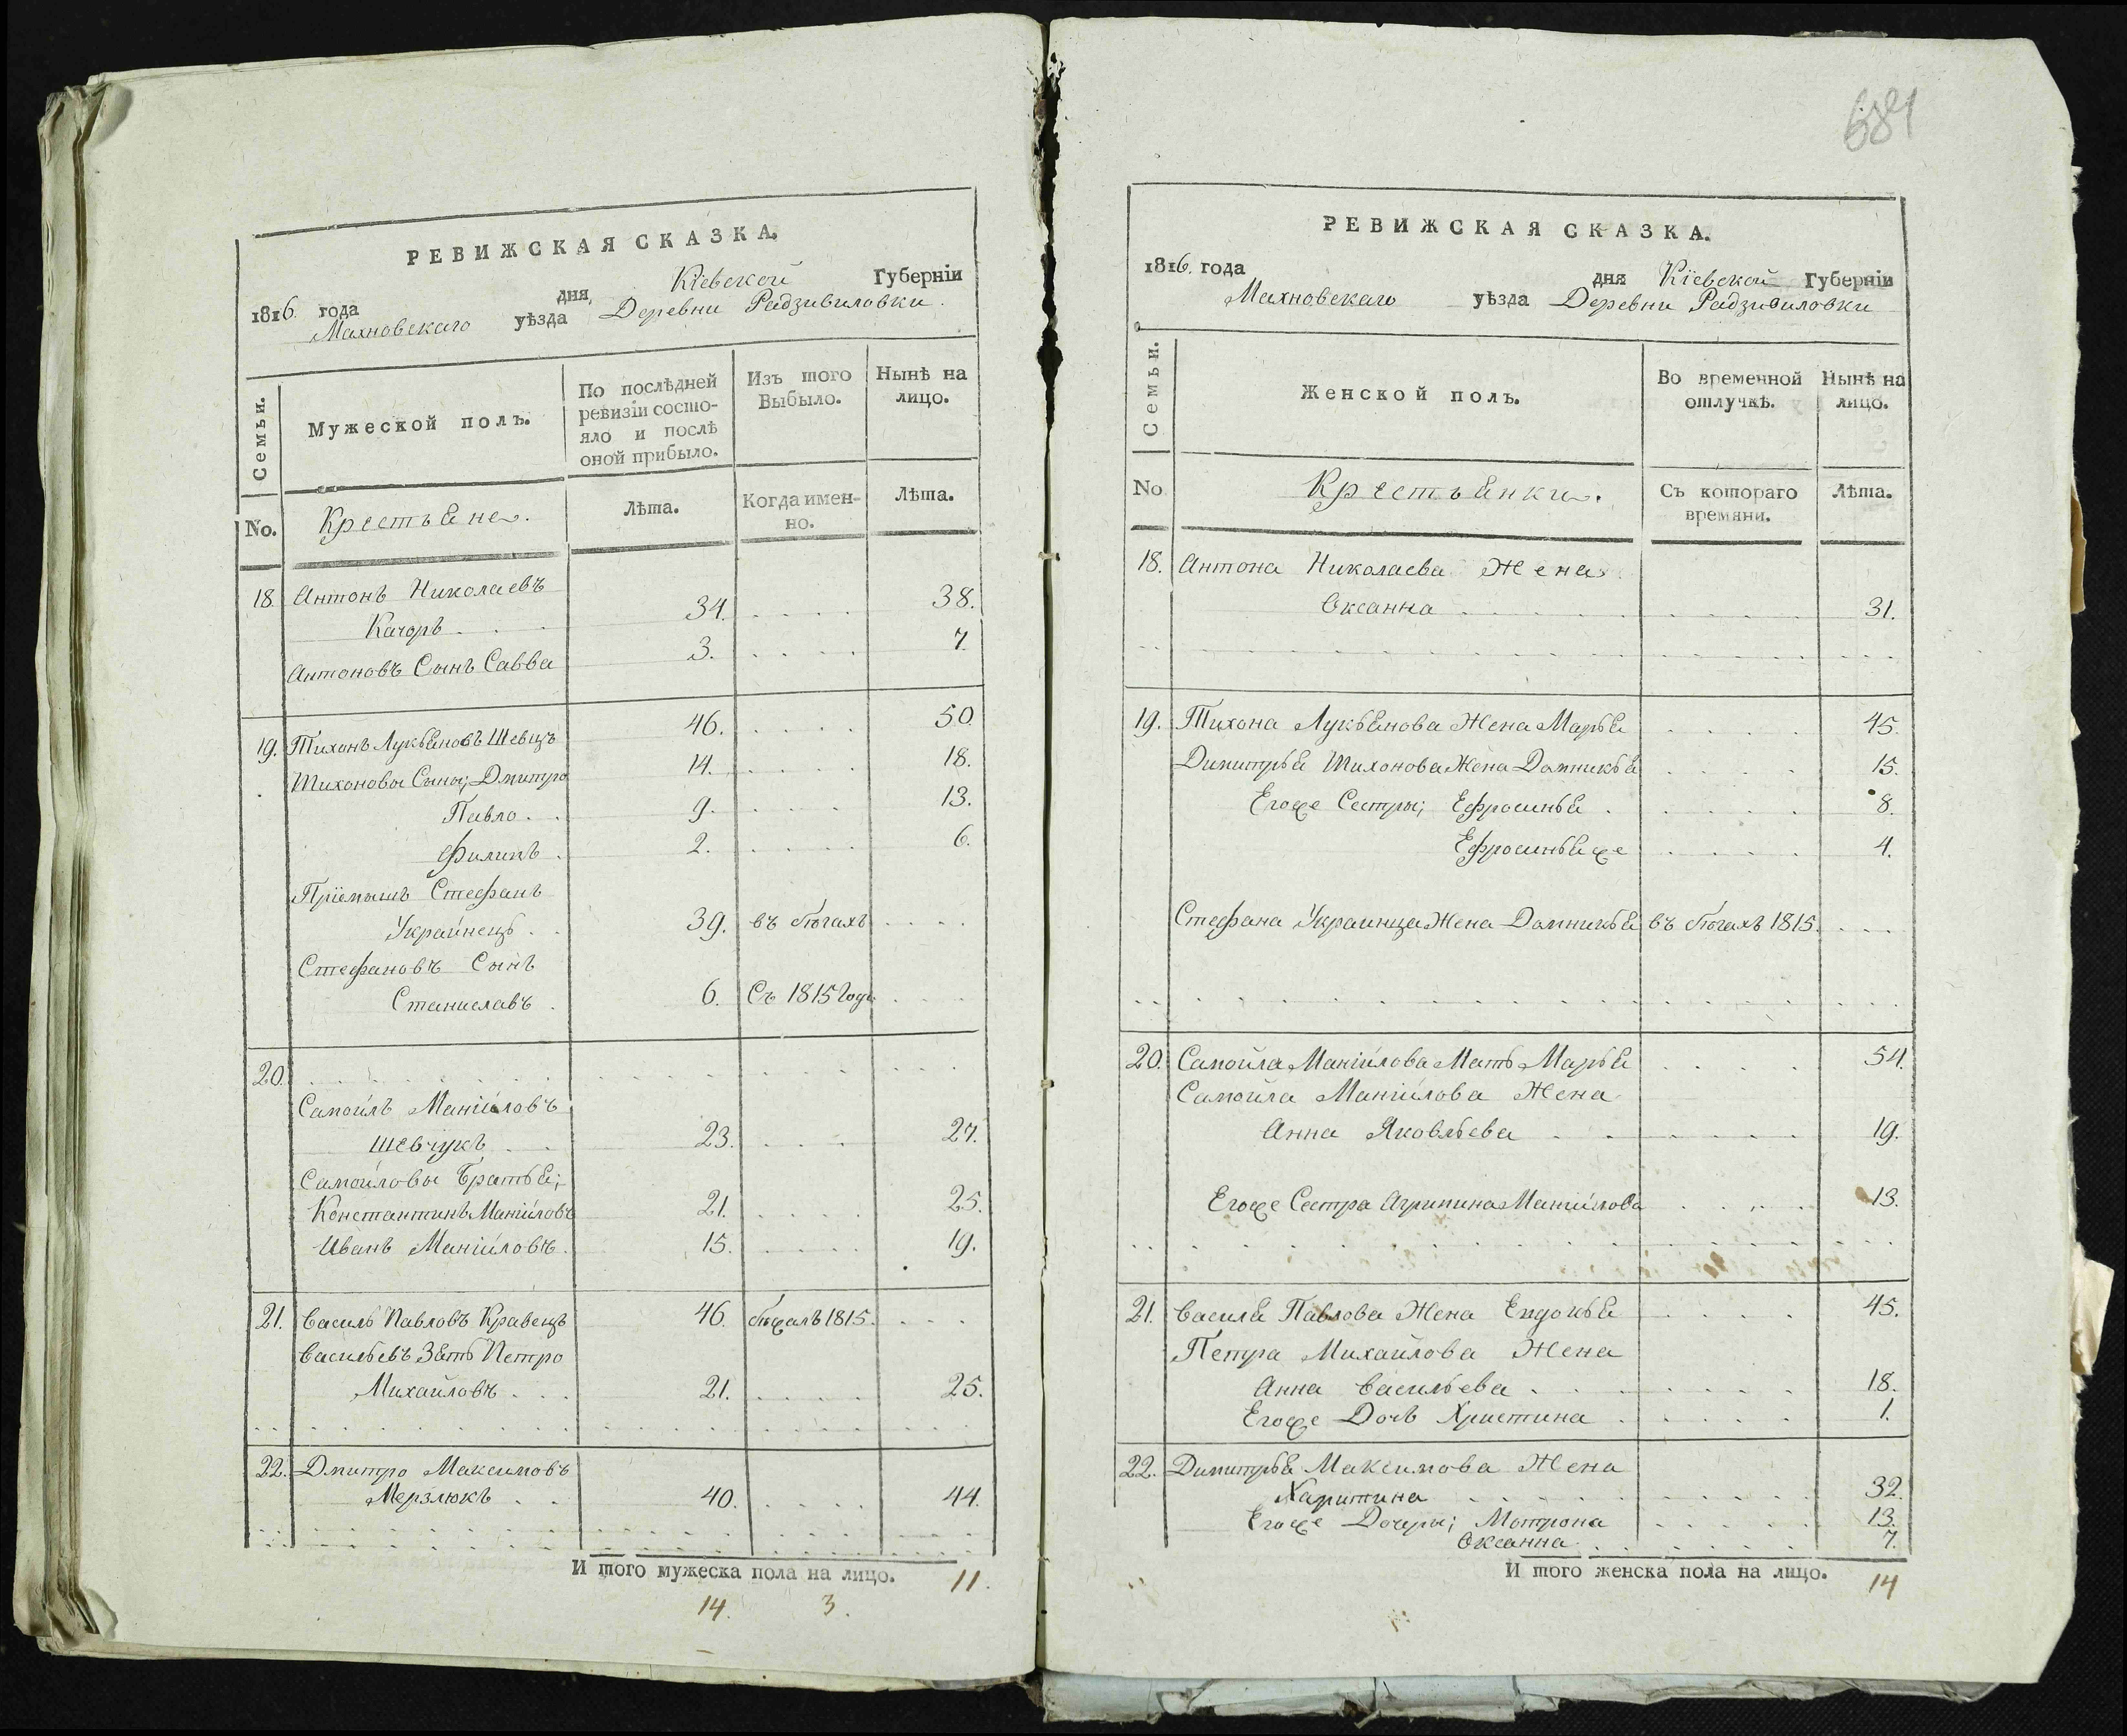 РЕВИЖСКАЯ СКАЗКА.
1816. года дня, Кіевской Губерніи
Махновскаго уѣзда Деревни Радзивиловки.
Семьи.
Мужеской полъ.
По послѣдней ревизіи состо-
яло и послѣ
оной прибыло.
Изъ того
Выбыло.
Нынѣ на
лицо.
No.
Крестьяне.
Лѣта.
Когда имен-
но.
Лѣта.
18. Антонъ Николаевъ
Качоръ . . . 34. . . . . 38.
Антоновъ Сынъ Савва 3. . . . . 7.
19. Тихонъ Лукьяновъ Швецъ 46. . . . . 50.
Тихоновы Сыны; Дмитро 14. . . . . 18.
Павло . . 9. . . . . 13.
Филипъ . 2. . . . . 6.
Пріемышъ Стефанъ
Украинецъ . . 39. въ бѣгахъ . . . .
Стефановъ Сынъ
Станиславъ . 6. Съ 1815 Года . . . .
20.
Самойлъ Маніиловъ
Шевчукъ . . 23. . . . . 27.
Самойловы Братья;
Константинъ Маніиловъ 21. . . . . 25.
Иванъ Маніиловъ. 15. . . . . 19.
21. Василь Павловъ Кравецъ 46. бѣжалъ 1815. . . .
Васильевъ Зять Петро
Михайловъ . . . 21. . . . . 25.
22. Дмитро Максимовъ
Мерзлюкъ . . 40. . . . . 44.
И того мужеска пола на лицо. 11.
14. 3.
681
РЕВИЖСКАЯ СКАЗКА.
1816. года дня Кіевской Губерніи
Махновскаго уѣзда Деревни Радзивиловки
Семьи.
Женской полъ.
Во временной
отлучкѣ.
Нынѣ на
лицо.
No
Крестьянки.
Съ котораго
времяни.
Лѣта.
18. Антона Николаева Жена
Оксанна . . . . 31.
19. Тихона Лукьянова Жена Марья . . . . 45.
Димитрья Тихонова Жена Домникья . . . . 15.
Егоже Сестры; Ефросинья . . . . . 8.
Ефросинья же . . . . 4.
Стефана Украинца Жена Домникья въ бѣгахъ 1815. . . .
20. Самойла Маніилова Мать Марья . . . . 54.
Самойла Маніилова Жена
Анна Яковльева . . . . 19.
Егоже Сестра Агрипина Маніилова . . . . 13.
21. Василя Павлова Жена Евдокья . . . . 45.
Петра Михайлова Жена
Анна Васильева . . . . 18.
Егоже Дочь Христина . . . . . 1.
22. Димитрья Максимова Жена
Харитина . . . . 32.
Егоже Дочери; Мотрона . . . . 13.
Оксанна . . . . . 7.
И того женска пола на лицо. 14